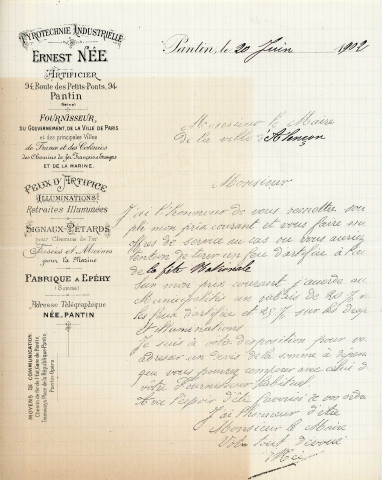 PYROTECHNIE INDUSTRIELLE
ERNEST NÉE
ARTIFICIER
94, Route des Petits-Ponts, 94
Pantin
(Seine)
FOURNISSEUR
DU GOUVERNEMENT, DE LA VILLE DE PARIS
et des principales Villes
de France et des Colonies
des Chemins de fer Français & Étrangers
ET DE LA MARINE.
FEUX D'ARTIFICE
ILLUMINATIONS
Retraites Illuminées
SIGNAUX-PÉTARDS
pour Chemins de Fer
Fusées et Moines
pour la Marine
FABRIQUE A EPÉHY
(Somme)
Adresse Télégraphique
NÉE, PANTIN
MOYENS DE COMMUNICATION
Chemin de fer de l'Est, Gare de Pantin
Tramways Place de la République-Pantin
Pantin-Opéra
Pantin, le 20 Juin 1902
Monsieur le Maire
de la ville d'Alençon
Monsieur
J'ai l'honneur de vous remettre sou
pli mon prix courant et vous faire m
offres de service au cas ou vous auriez
l'intention de tirer un feu d'artifice à l'oc
de la fête Nationale
Sur mon prix courant j'accorde au
Municipalités un rabais de %
les feux d'artifice et 25 % sur les
et Illuminations
Je suis à votre disposition pour vo
adresser un devis de la somme à dépen
que vous pourrez comparer avec celui d
votre fournisseur habituel
Avec l'espoir d'être favorisé de vos ordre
J'ai l'honneur d'être
Monsieur le Maire
Votre tout dévoué
Née